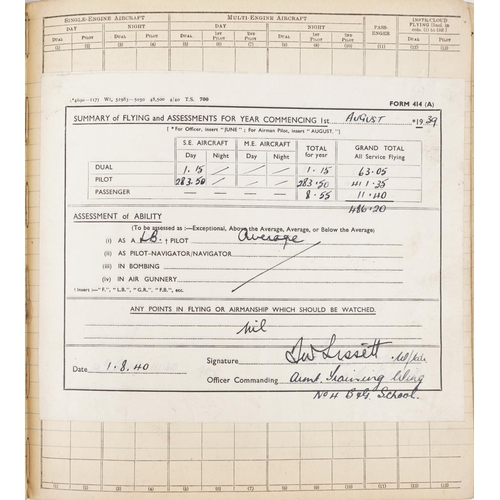 SINGLE-ENGINE AIRCRAFT MULTI-ENGINE AIRCRAFT PASS-ENGER INSTR/CLOUD FLYING [Incl. in cols. (1) to (10)]
DAY NIGHT DAY NIGHT
DUAL PILOT DUAL PILOT DUAL 1ST PILOT 2ND PILOT DUAL 1ST PILOT 2ND PILOT DUAL PILOT
(1) (2) (3) (4) (5) (6) (7) (8) (9) (10) (11) (12) (13)
T.S. 700 FORM 414 (A)
SUMMARY of FLYING and ASSESSMENTS FOR YEAR COMMENCING 1st AUGUST *1939
[* For Officer, insert "JUNE"; For Airman Pilot, insert "AUGUST."]
S.E. AIRCRAFT M.E. AIRCRAFT TOTAL for year GRAND TOTAL All Service Flying
Day Night Day Night
DUAL 1.15 / / / 1.15 63.05
PILOT 283.50 / / / 283.50 411.35
PASSENGER — — — — 8.55 11.40
486.20
ASSESSMENT of ABILITY
(To be assessed as :—Exceptional, Above the Average, Average, or Below the Average)
(i) AS A LB † PILOT Average
(ii) AS PILOT-NAVIGATOR/NAVIGATOR
(iii) IN BOMBING
(iv) IN AIR GUNNERY
† Insert :—"F.", "L.B.", "G.R.", "F.B.", etc.
ANY POINTS IN FLYING OR AIRMANSHIP WHICH SHOULD BE WATCHED.
nil
Signature
Date 1.8.40
Officer Commanding Armt. Training Wing
No 4 B&G School.
(1) (2) (3) (4) (5) (6) (7) (8) (9) (10) (11) (12) (13)